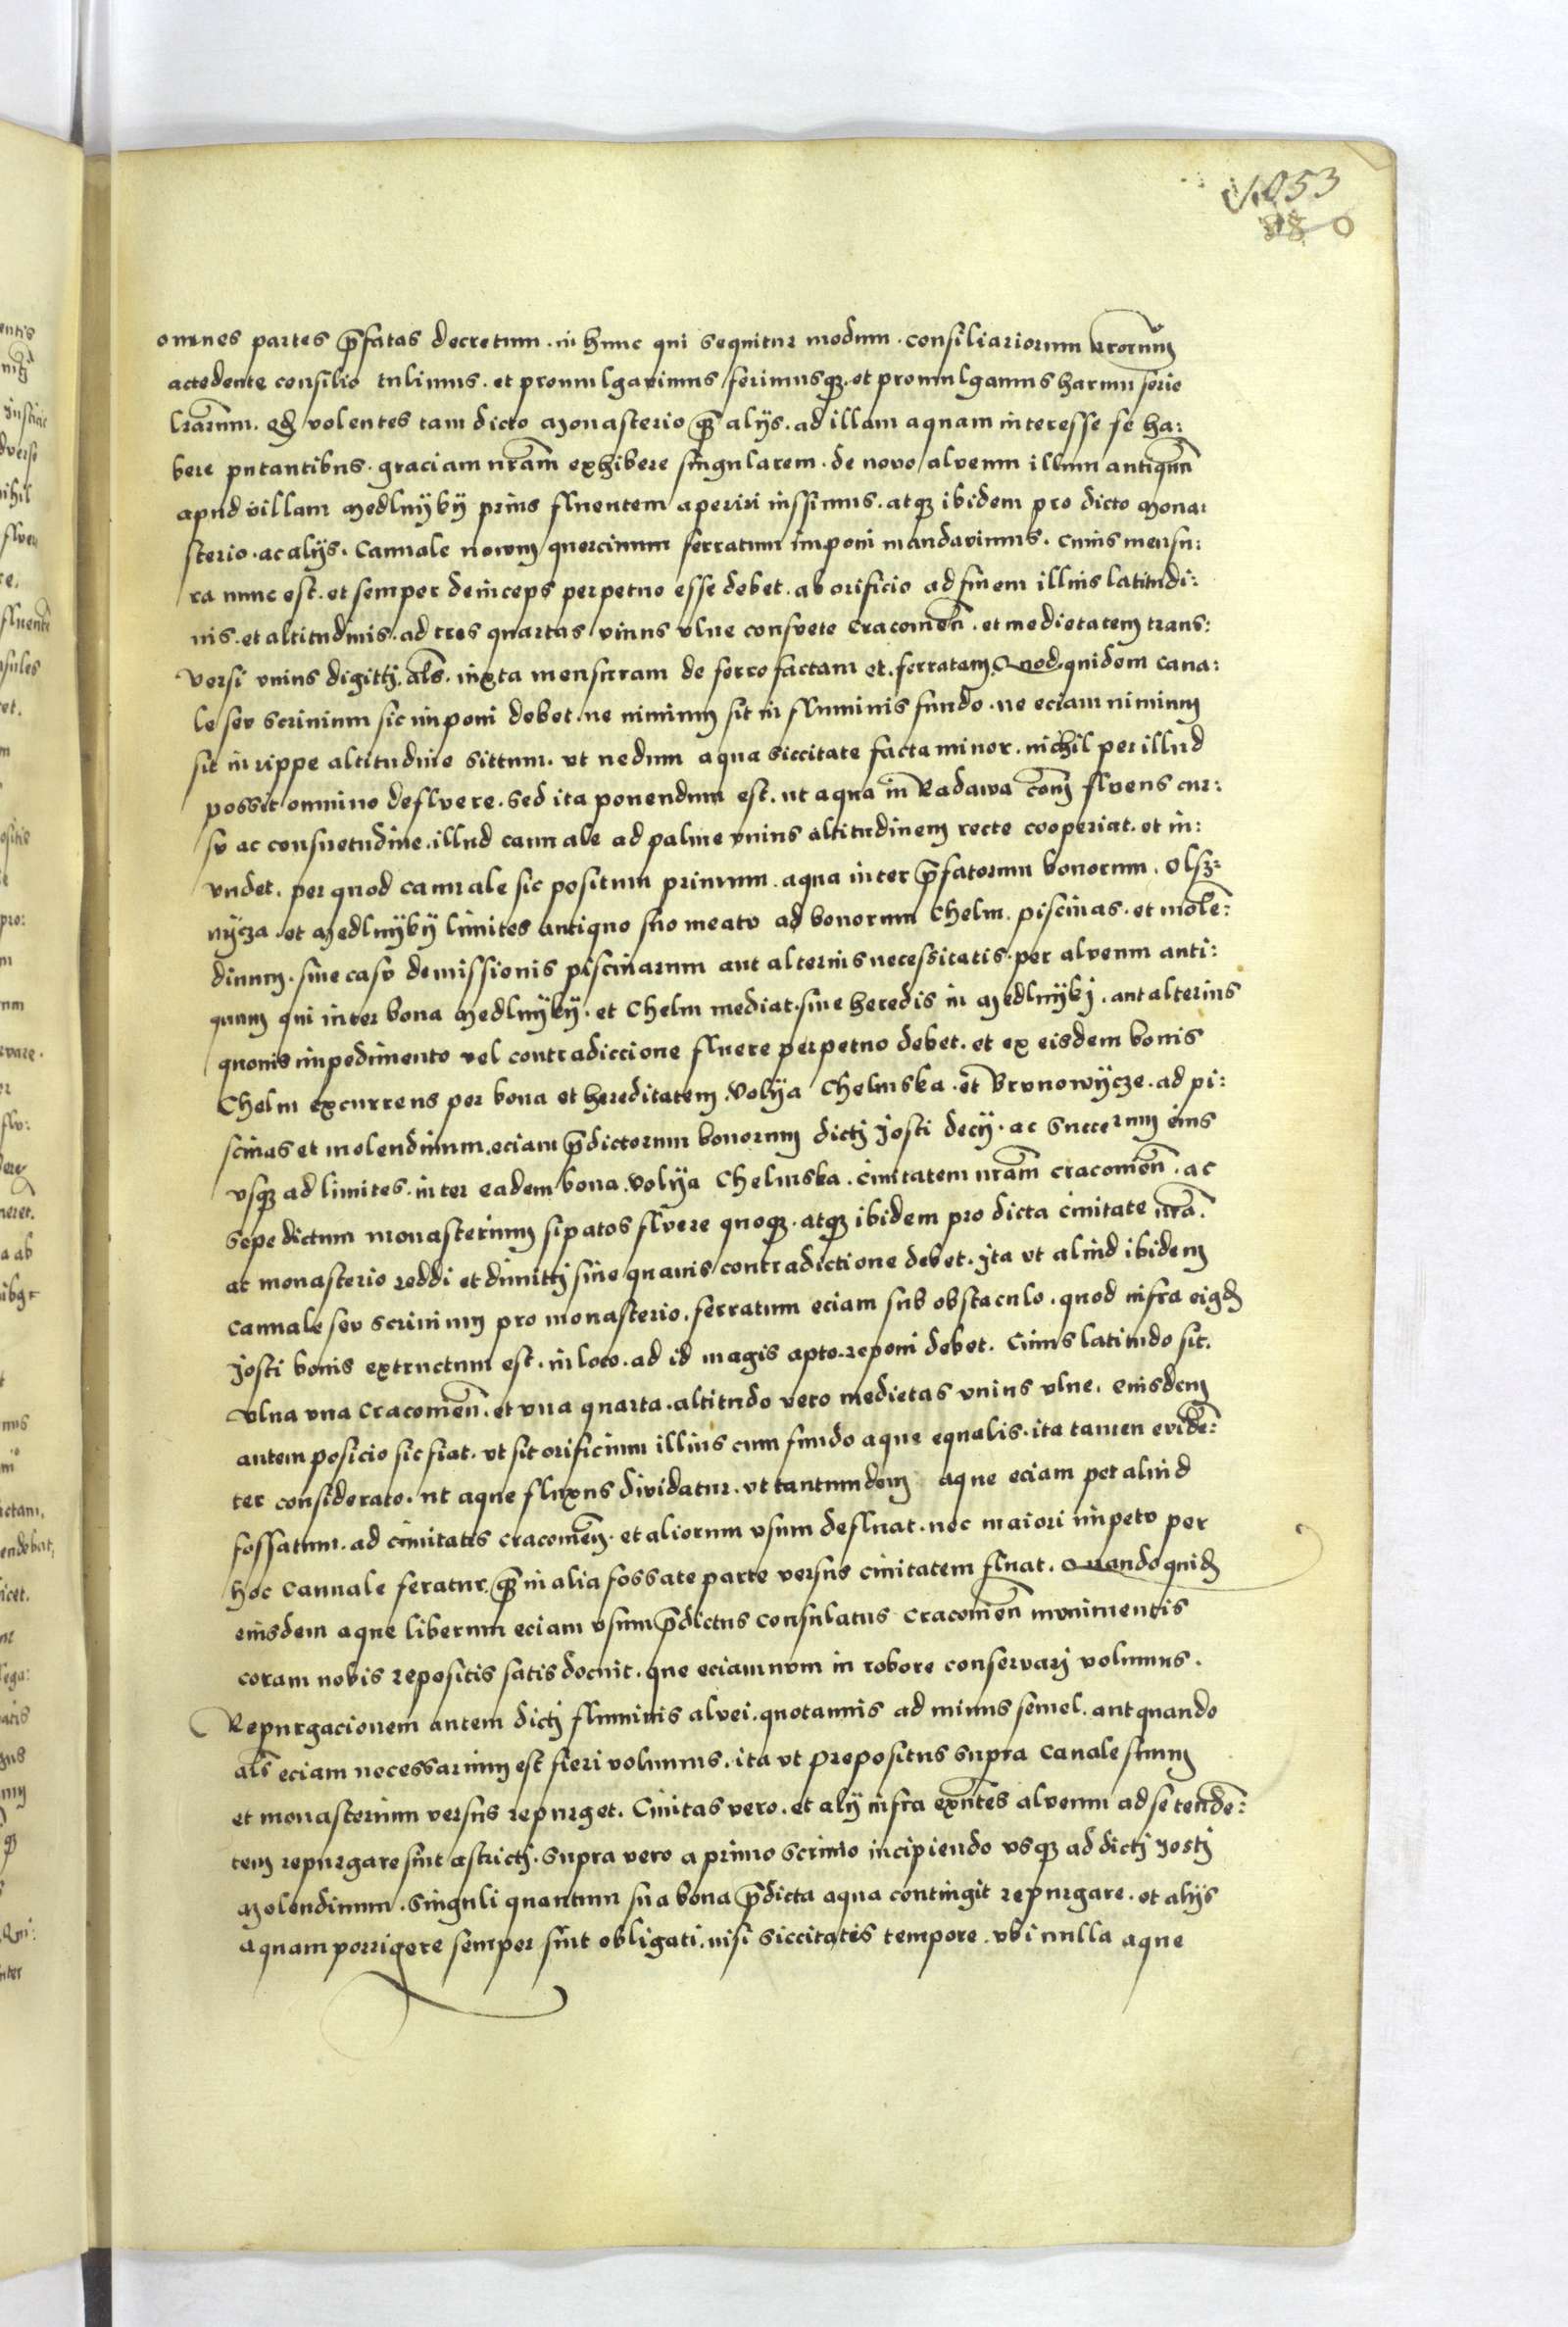 053
omnes partes p̄fatas decretum . in hunc qui sequitur modum . consiliariorum nrorum̄
accedente consilio tulimus . et promulgavimus ferimusq₃ . et promulgamus harum serie
lrārum . Qd volentes tam dicto Monasterio q̄₃ alijs . ad illam aquam interesse se ha:
bere putantibus . graciam nrām exhibere singularem . de novo alveum illum antiquū
apud villam Medlnyky prius fluentem aperiri iussimus . atq₃ ibidem pro dicto Mona:
sterio . ac alijs . Cannale nowm quercinum ferratum imponi mandavimus . cuius mensu:
ra nunc est . et semper deinceps perpetuo esse debet . ab orificio ad finem illius latitudi:
nis . et altitudinis . ad tres quartas vnius vlne consvete Cracovien̄ . et medietatem trans:
versi vnius digitti . al̄s . iuxta mensuram de ferro factam et . ferratam . Quod quidem cana:
le sev scrinium sic imponi debet . ne nimium sit in fluminis fundo . ne eciam nimium
sit in rippe altitudine sittum . vt nedum aqua siccitate facta minor . nichil per illud
possit omnino deflvere . sed ita ponendum est . ut aqua in Radawa com̄ flvens cur:
sv ac consuetudine . illud cannale ad palme vnius altitudinem recte cooperiat . et in:
vndet . per quod cannale sic positum primum . aqua inter p̄fatorum bonorum . Olsz:
nycza . et Medlnyky limites antiquo suo meatv ad bonorum Chelm . piscinas . et molē:
dinum . sine casv demissionis piscinarum aut alterius necessitatis . per alveum anti:
quum qui inter bona Medlnyky . et Chelm mediat . sine heredis in Medlnykj . aut alterius
quonis impedimento vel contradiccione fluere perpetuo debet . et ex eisdem bonis
Chelm excurrens per bona et hereditatem . Volya Chelmska . et Brvnowycze . ad pi:
scinas et molendinum . eciam p̄dictorum bonorum dictj Josti decij . ac succerum eius
vsq₃ ad limites . inter eadem bona . Volya Chelmska . civitatem nrām Cracovien̄ . ac
sepe dictum monasterium sipatos flvere quoq₃ . atq₃ ibidem pro dicta civitate nrā .
ac monasterio reddi et dimittj sine quauis contradictione debet . Jta vt aliud ibidem
Cannale sev scrinium pro monasterio . ferratum eciam sub obstaculo . quod infra eiqd
Josti bonis extructum est . in loco . ad id magis apto . reponi debet . Cuius latitudo sit .
vlna vna Cracovien̄ . et vna quarta . altitudo vero medietas vnius vlne . eiusdem
autem posicio sic fiat . vt sit orificium illius cum fundo aque equalis . ita tamen evidē:
ter considerato . ut aque fluxus dividatur . vt tantumdem aque eciam per aliud
fossatum . ad civitatis Cracovien̄ . et aliorum vsum defluat . nec maiori impetv per
hoc Cannale feratur . q̄₃ in alia fossate parte versus civitatem fluat . Quandoquid
eiusdem aque liberum eciam vsum p̄dictus Consulatus Cracovien̄ mvnimentis
coram nobis repositis satis docuit . que eciam nvm in robore conservarj volumus .
Repurgacionem autem dictj fluminis alvei . quotannis ad minus semel . aut quando
al̄s eciam necessarium est fieri volumus . ita vt prepositus supra Canale suum
et monasterium versus repurget . Civitas vero . et alij infra exn̄tes alveum ad se tendē:
tem repurgare sint astrictj . supra vero a primo scrinio incipiendo vsq₃ ad dictj Jostj
Molendinum . singuli quantum sua bona p̄dicta aqua contingit repurgare . et alijs
aquam porrigere semper sint obligati . nisi siccitatis tempore . vbi nulla aque